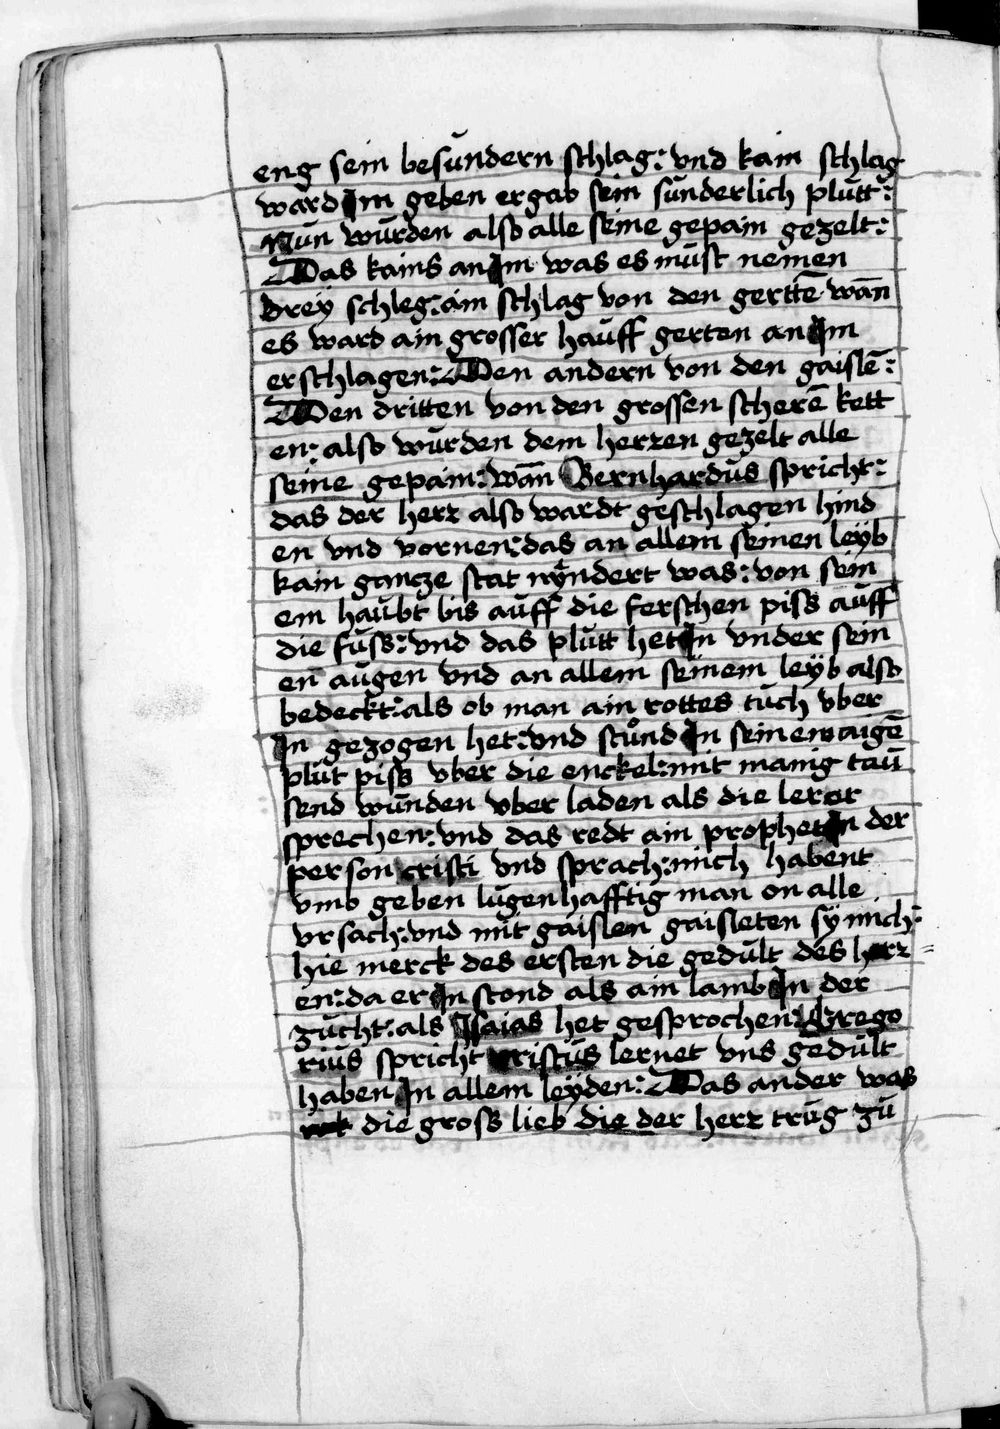 eng sein besundern schlag: vnd kain schlag
ward Im geben er gab sein sunderlich plutt:
Nun wurden also alle seine gepain gezelt:
Das kains an Im was es must nemen
drey schleg: ain schlag von den gerttē wān
es ward ain grosser hauff gerten an Im
erschlagen: Den andern von den gaislē:
Den dritten von den grossen scherē kett
en: also wurden dem herren gezelt alle
seine gepain: wān Bernhardus spricht:
das der herr also wardt geschlagen hind
en vnd vornen: das an allem seinen leyb
kain gancze stat nyndert was: von sein
em haubt bis auff die ferschen piss auff
die fuss: vnd das plutt het In vnder sein
en augen vnd an allem seinem leyb also
bedeckt: als ob man ain rottes tuch vber
In gezogen het: vnd stůnd In seinem aigē
plut piss vber die enckel: mit manig tau
send wunden vber laden als die lerer
sprechen: vnd das redt ain prophet In der
person cristi vnd sprach: mich habent
vmb geben lugenhafftig man on alle
vrsach: vnd mit gaislen gaisleten sy mich:
hie merck des ersten die gedult des herr
en: da er In stond als ain lamb In der
zucht: als Isaias het gesprochen: Grego
rius spricht cristus lernet vns gedult
haben In allem leyden: Das ander was
die gross lieb die der herr trug zu